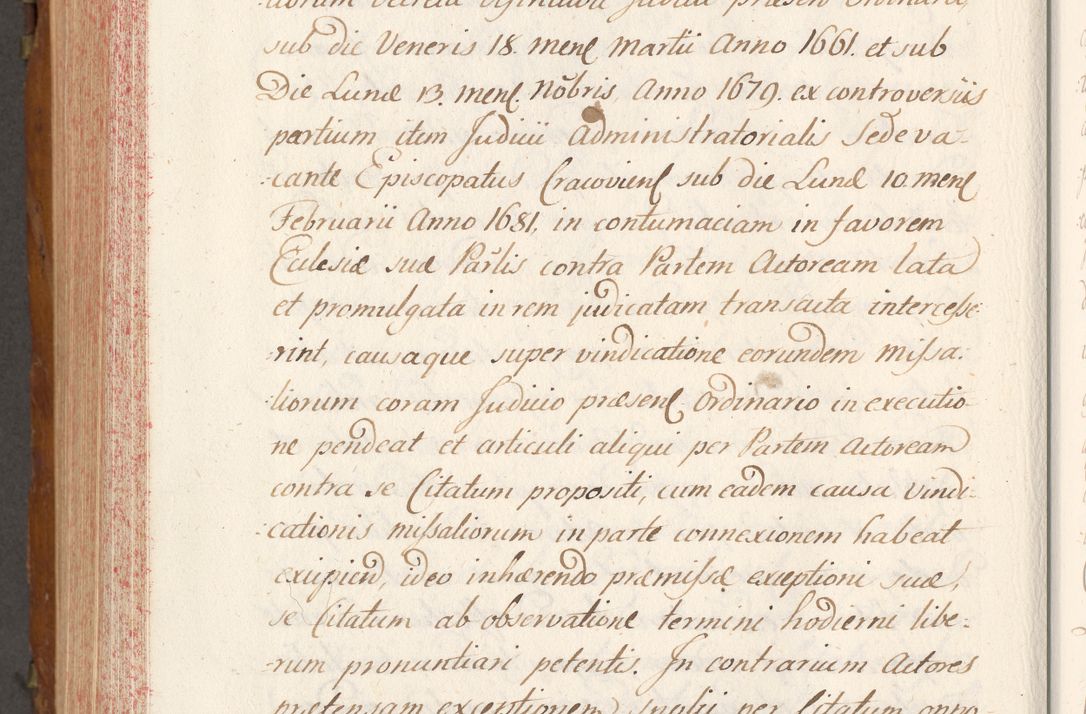 sub die Veneris 18. menſ Martii Anno 1661. et sub
Die Lunæ 13. menſ. Nobris Anno 1679. ex controversiis
partium item Judicii Administratorialis Sede va-
-cante Episcopatus Cracovienſ sub die Lunæ 10. menſ
Februarii Anno 1681. in contumaciam in favorem
Ecclesiæ suæ Parlis contra Partem Actoream lata
et promulgata in rem judicatam transacta intercesse-
-rint, causaque super vindicatione eorundem missa-
-liorum coram Judicio præsenſ. Ordinario in executio-
ne pendeat et articuli aliqui per Partem Actoream
contra se Citatum propositi, cum eadem causa vindi-
-cationis missaliorum in parte connexionem habeat
excipiend, ideo inhærendo præmissæ exceptioni suæ,
se Citatum ab observatione termini hodierni libe-
-rum pronuntiari petentis. In contrarium Actores
prætensam exceptionem per Citatum oppo-